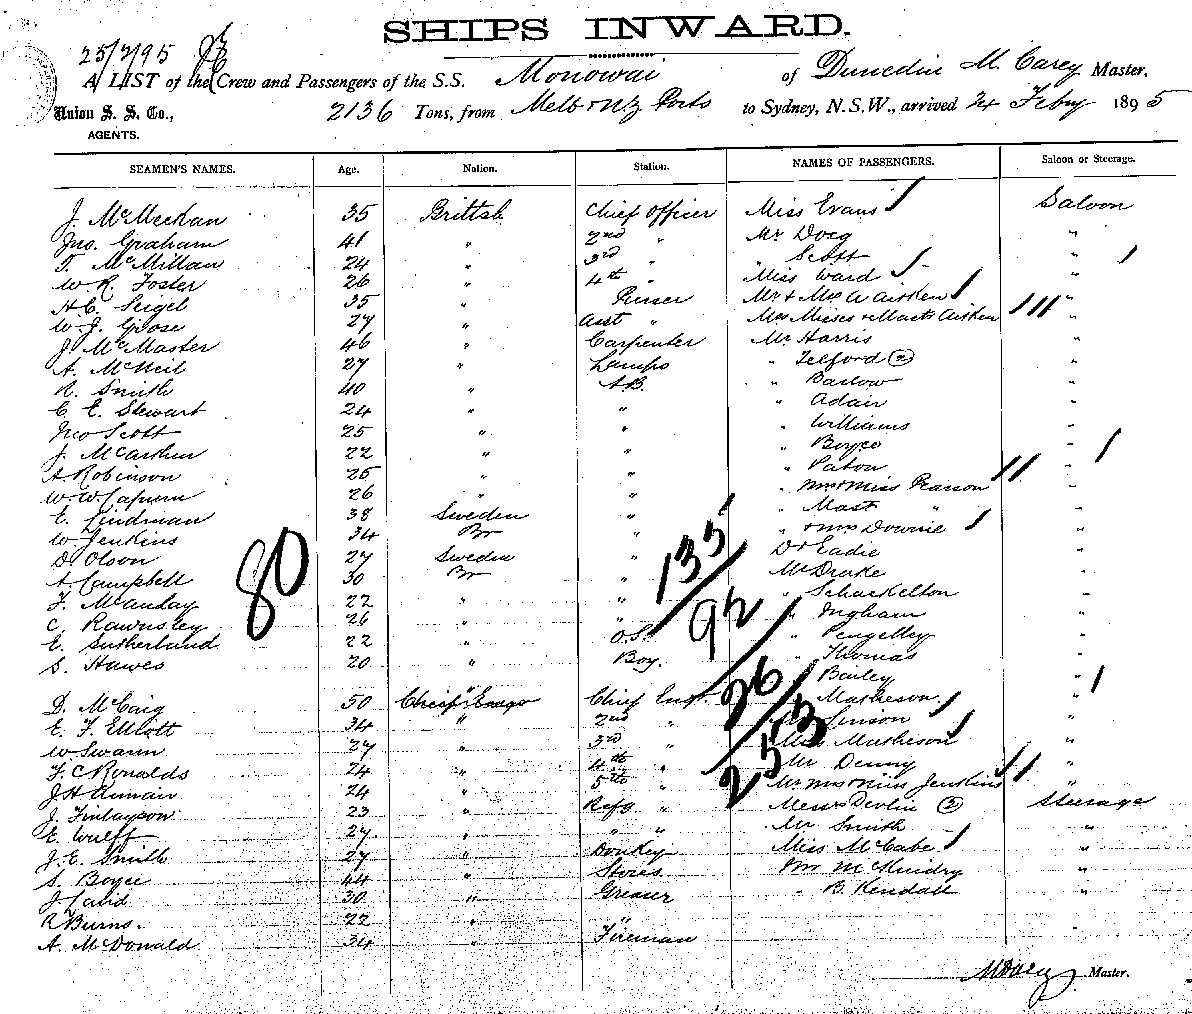 SHIPS INWARD.
25/2/95
A LIST of the Crew and Passengers of the S.S. Monowai of Dunedin M. Carey Master,
Union S. S. Co., 2136 Tons, from Melb & NZ Ports to Sydney, N.S.W., arrived 24 Febry 1895
AGENTS.
SEAMEN'S NAMES. Age. Nation. Station. NAMES OF PASSENGERS. Saloon or Steerage.
J. McMeekan 35 British Chief Officer Miss Evans Saloon
Jno. Graham 41 " 2nd " Mr Doeg "
T. McMillan 24 " 3rd " " Scott "
W. R. Foster 26 " 4th " Miss Ward "
H. C. Seigel 35 " Purser Mr & Mrs A Aitken "
W. J. Goose 27 " Asst " Mrs Misses & Mastr Aitken "
J. McMaster 46 " Carpenter Mr Harris "
A. McNeil 27 " Lamps " Telford (2) "
R. Smith 40 " A.B. " Barlow "
C. E. Stewart 24 " " " Adair "
Jno Scott 25 " " " Williams "
J. McArthur 22 " " " Boyce "
A Robinson 25 " " " Paton "
W. W. 26 " " " Mrs & Miss Pearson "
E. Lindman 38 Sweden " " Mast " "
W Jenkins 34 Br " " & Mrs Downie "
D Olson 27 Sweden " Dr Eadie "
A Campbell 30 Br " Mr Drake "
F. McAuday 22 " " " Schackelton "
C. Rawnsley 26 " " " Ingham "
E. Sutherland 22 " O.S. " Pengelley "
S. Hawes 20 " Boy. " Thomas "
Bailey "
D. McCaig 50 " Chief " Matheson "
E. F. Elliott 34 " 2nd " Linson "
W Swann 27 " 3rd " Miss Matheson "
F. C Ronalds 24 " 4th " Mr Denny "
J H 24 " 5th " Mr Mrs & Miss Jenkins "
J. Finlayson 23 " Refg " Messrs Devlin (2) Steerage
E. Wulff 27 " " " Mr Smith "
J. E. Smith 27 " Donkey Miss McCabe "
S. Boyce 44 " Stores Mr "
J Laird 30 " Greaser " B. Kendall "
R Burns. 22 " "
A. McDonald 34 " Fireman
80
135
92
26
253
M Carey Master.